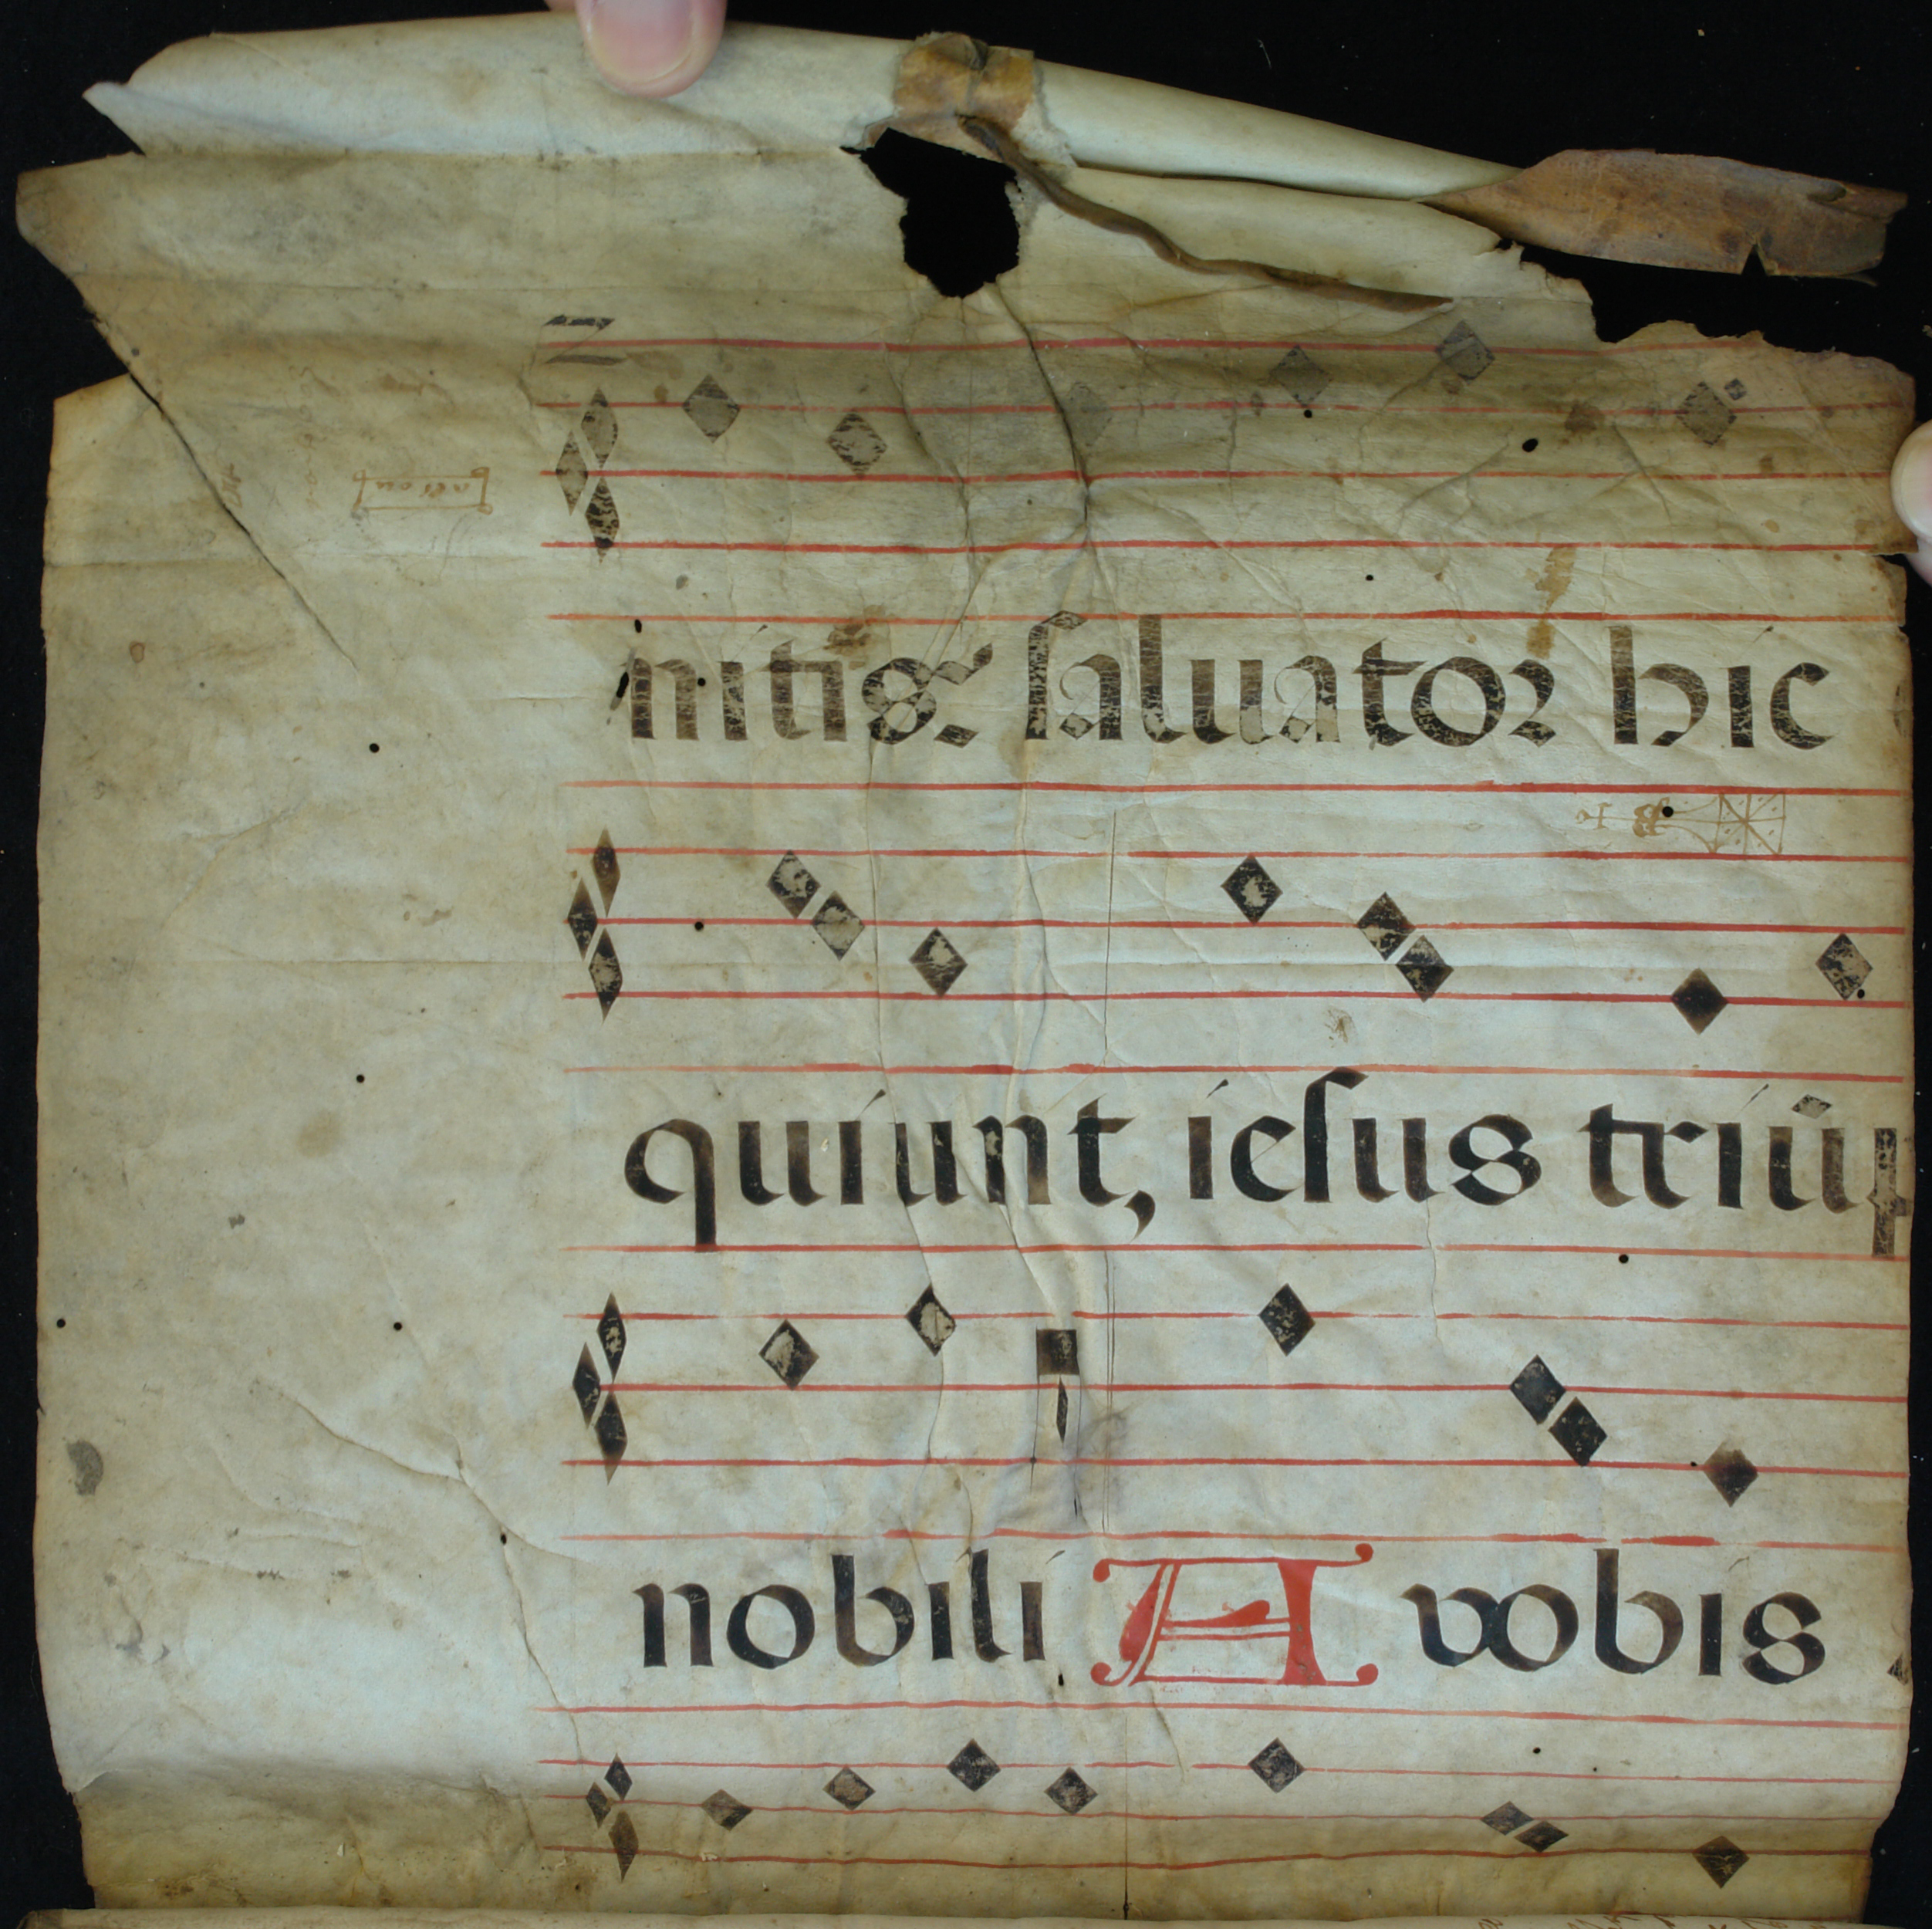 nitis: saluator hic
quiunt, iesus triũp
nobili A vobis